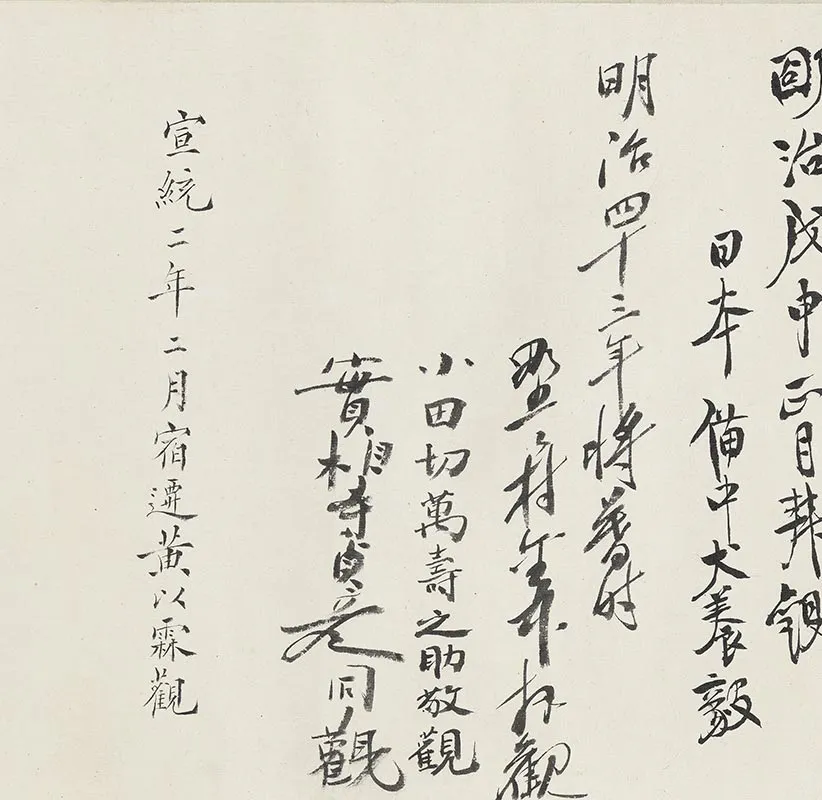 明治戊申正月拜觀
日本備中犬養毅
明治四十三年將暮時
拜觀
小田切萬壽之助敬觀
實相寺貞彥同觀
宣統二年二月宿遷黃以霖觀